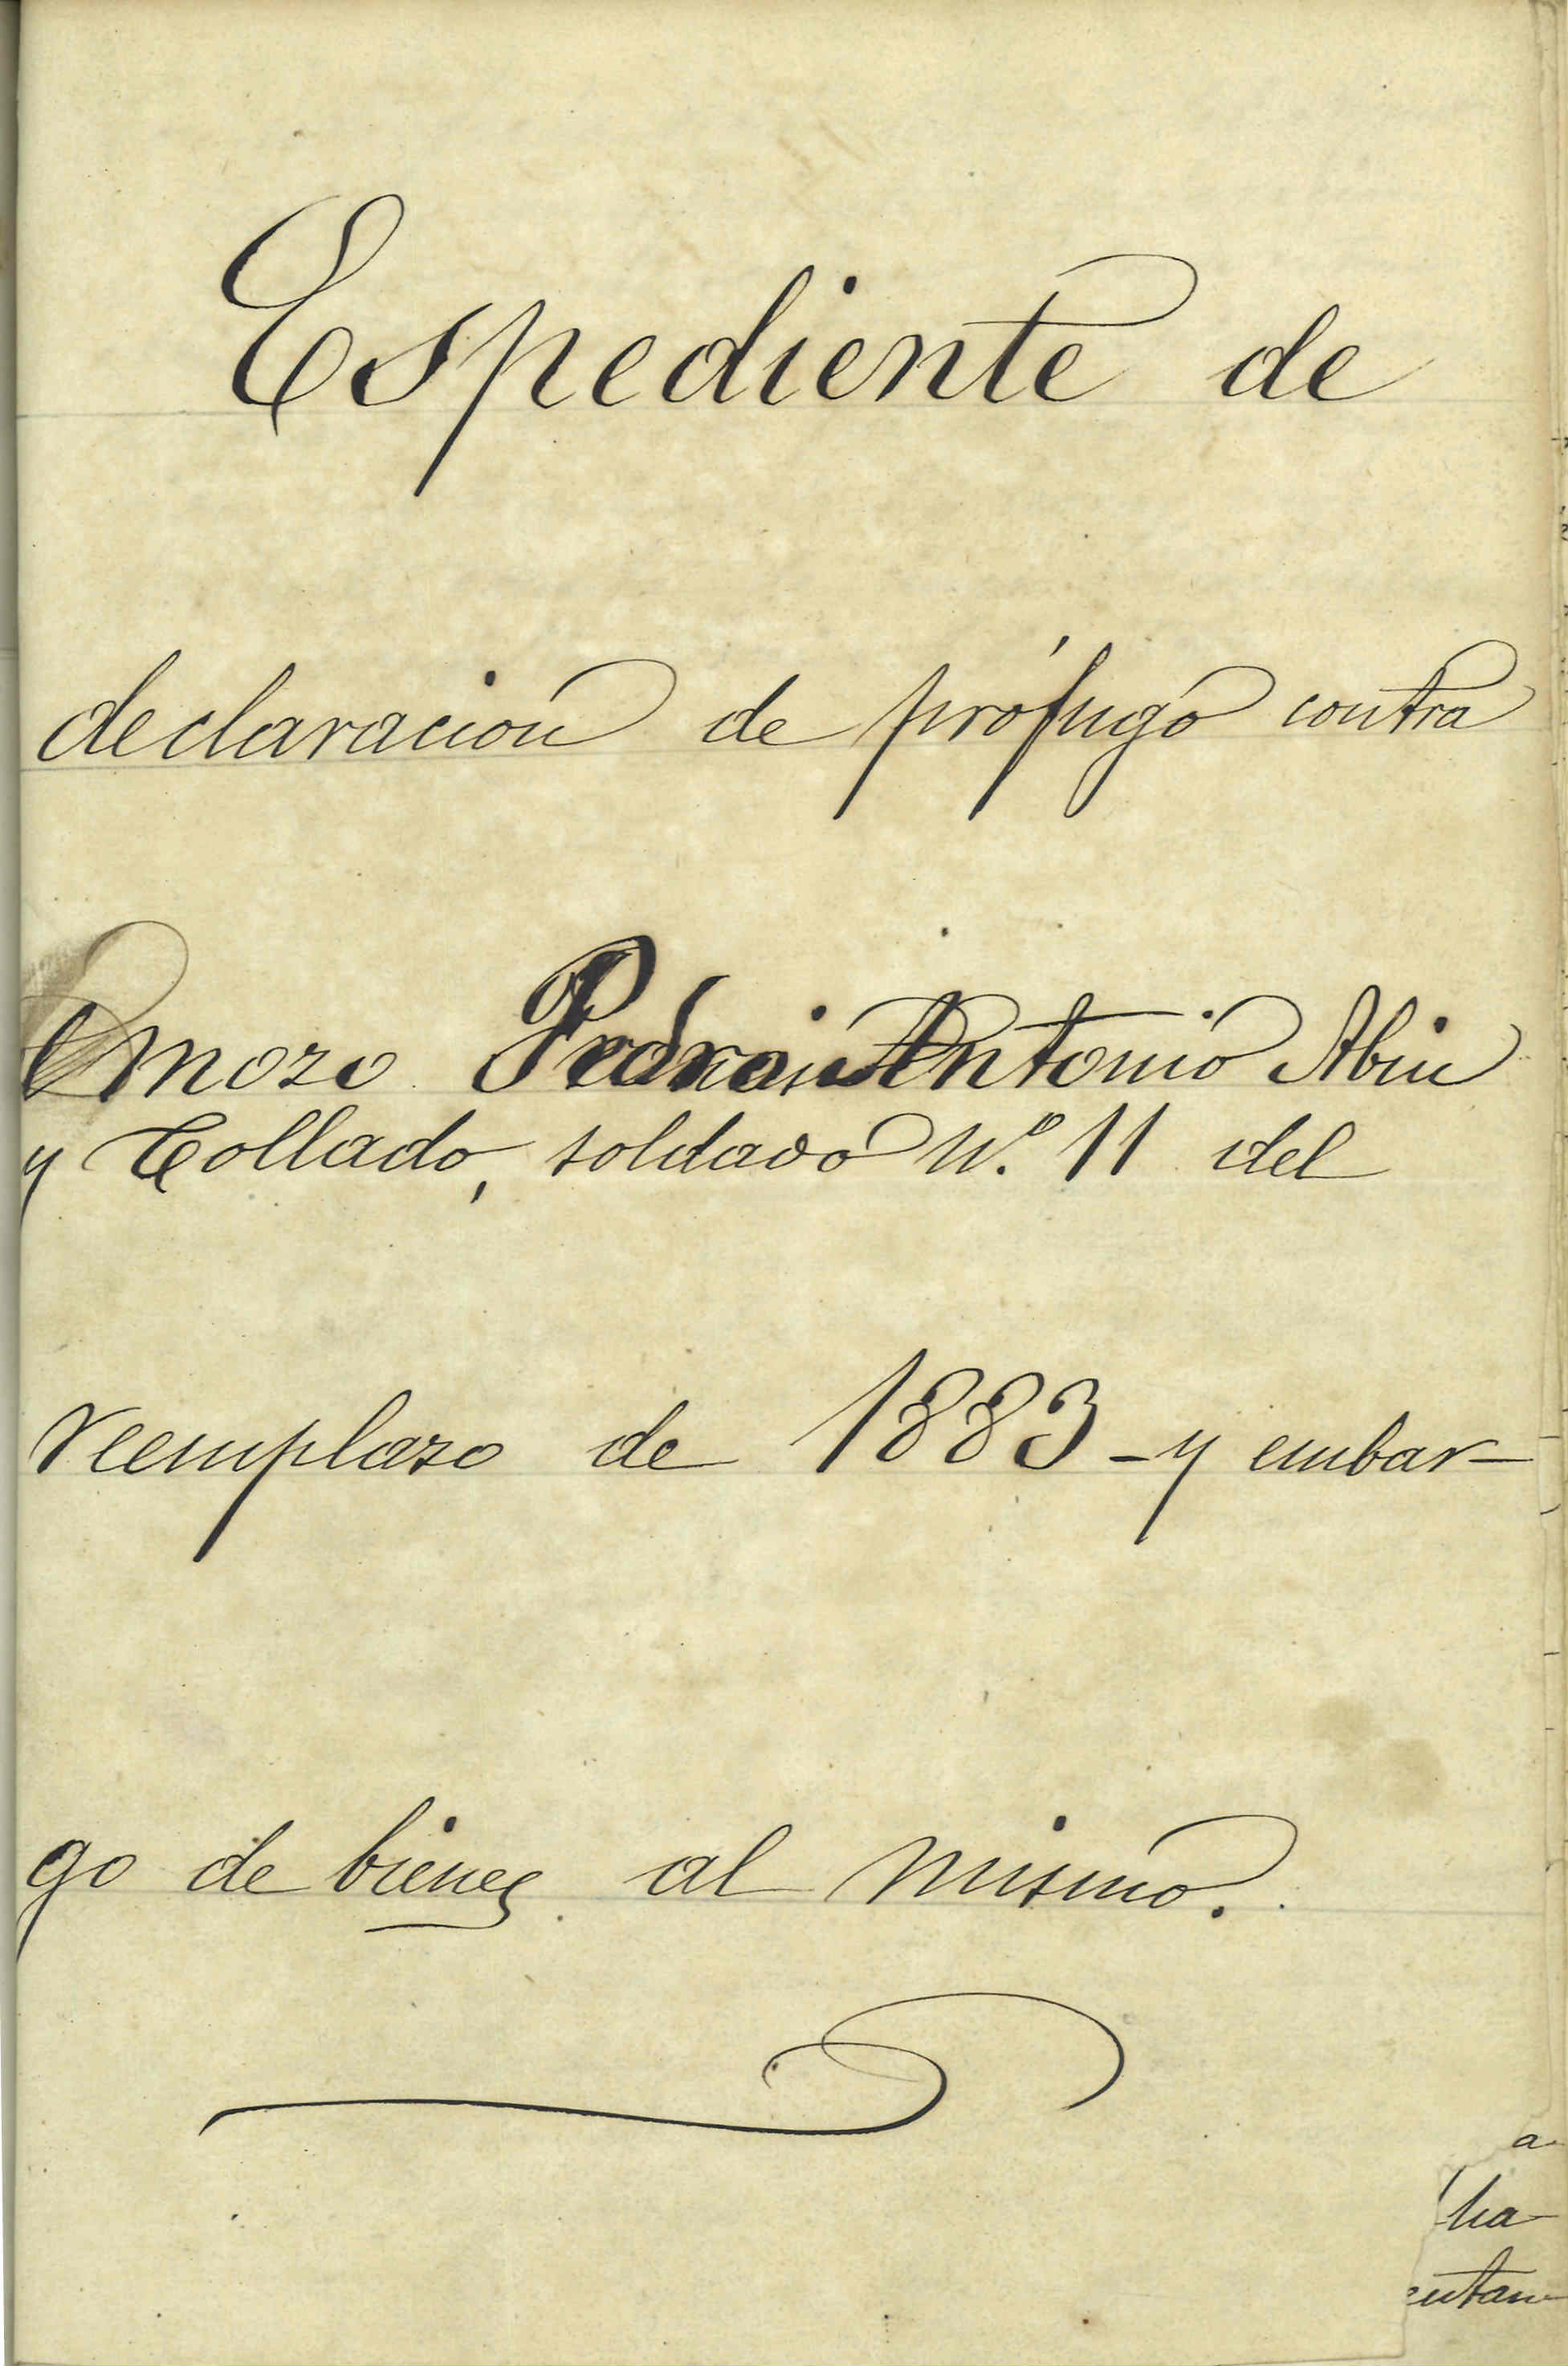 Espediente de
declaracion de prófugo contra
mozo Antonio Abin
y Collado, soldado Nº 11 del
reemplazo de 1883 - y embar-
go de bienes al mismo.
a
ha
entan